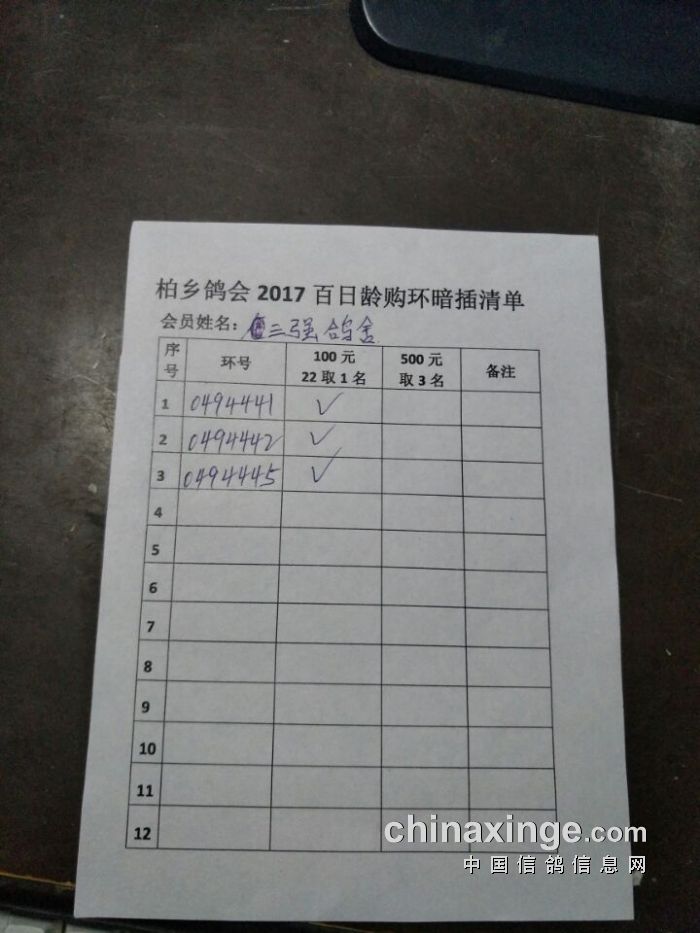 柏乡鸽会2017百日龄购环暗插清单
会员姓名：三强鸽舍
序号 环号 100元 22取1名 500元 取3名 备注
1 0494441 ✓
2 0494442 ✓
3 0494445 ✓
4
5
6
7
8
9
10
11
12
chinaxinge.com
中国信鸽信息网